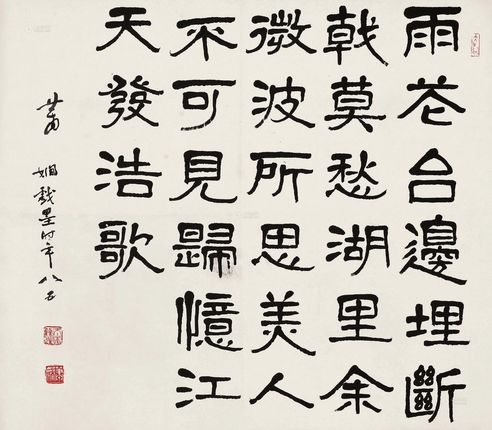 雨花台邊埋斷
戟莫愁湖里余
微波所思美人
不可見歸憶江
天發浩歌
蕭嫻戲墨时年八五